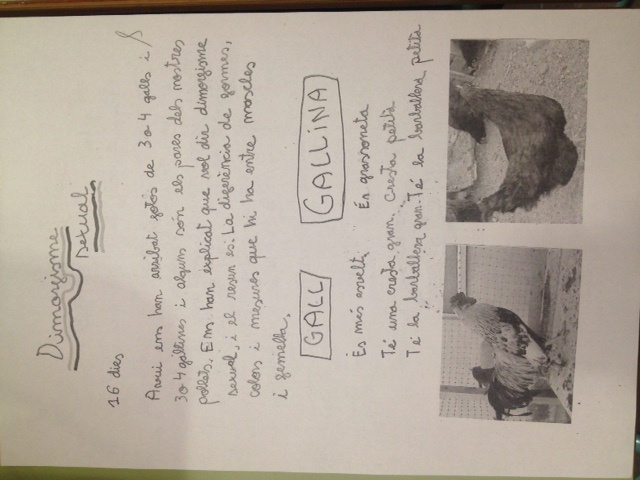 Dimorfisme
sexual
16 dies
Avui ens han arribat fotos de 3 o 4 galls i
3 o 4 gallines i alguns són els pares dels nostres
pollets. Ens han explicat que vol dir dimorfisme
sexual, i el resum es: La diferència de formes,
colors i mesures que hi ha entre mascles
i femella.
GALL GALLINA
És més esvelt. És grassoneta
Té una cresta gran. Cresta petita
Té la barballera gran. Té la barballera petita